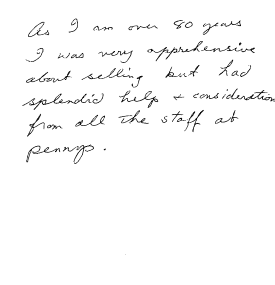 As I am over 80 years
I was very apprehensive
about selling but had
splendid help + consideration
from all the staff at
pennys.